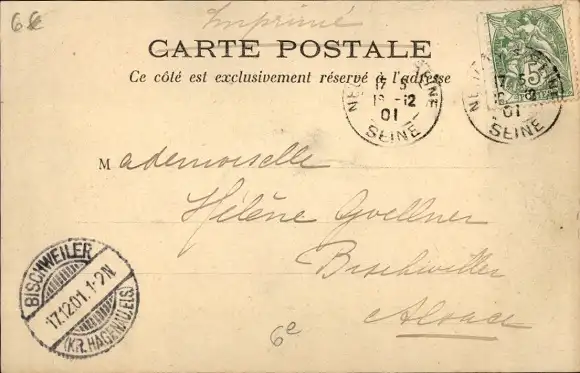 6€
Imprimé
CARTE POSTALE
Ce côté est exclusivement réservé à l'adresse
5
17 5
12 -12
01
SEINE
17 5
12
01
SEINE
Mademoiselle
Hélène Goellner
Bischwiller
Alsace
BISCHWEILER
17.12.01. 1-2N
(KR. HAGENAU. ELS)
6e